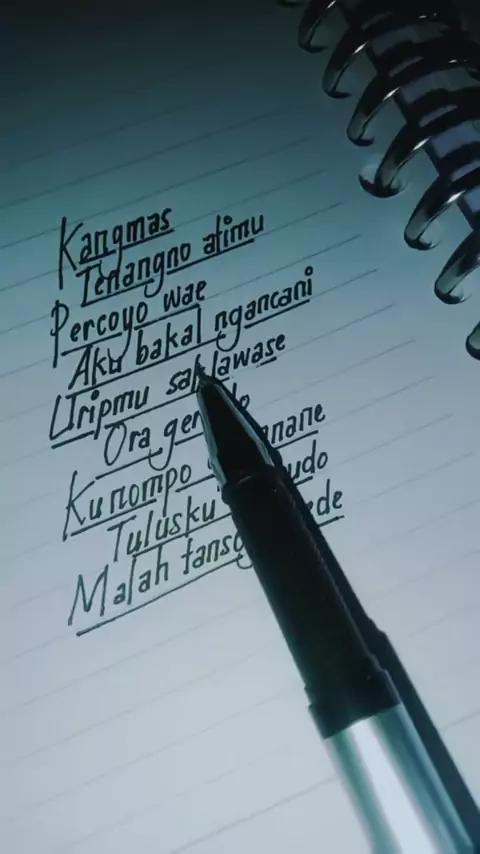 Kangmas
Tenangno atimu
Percoyo wae
Aku bakal ngancani
Uripmu saklawase
Ora
Kunompo
Tulusku
Malah